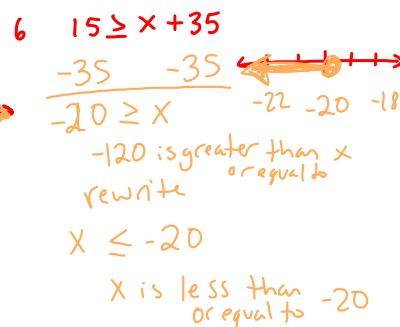 6 15 ≥ x + 35
-35 -35
-22 -20 -18
-20 ≥ x
-120 is greater than x
or equal to
rewrite
x ≤ -20
x is less than -20
or equal to